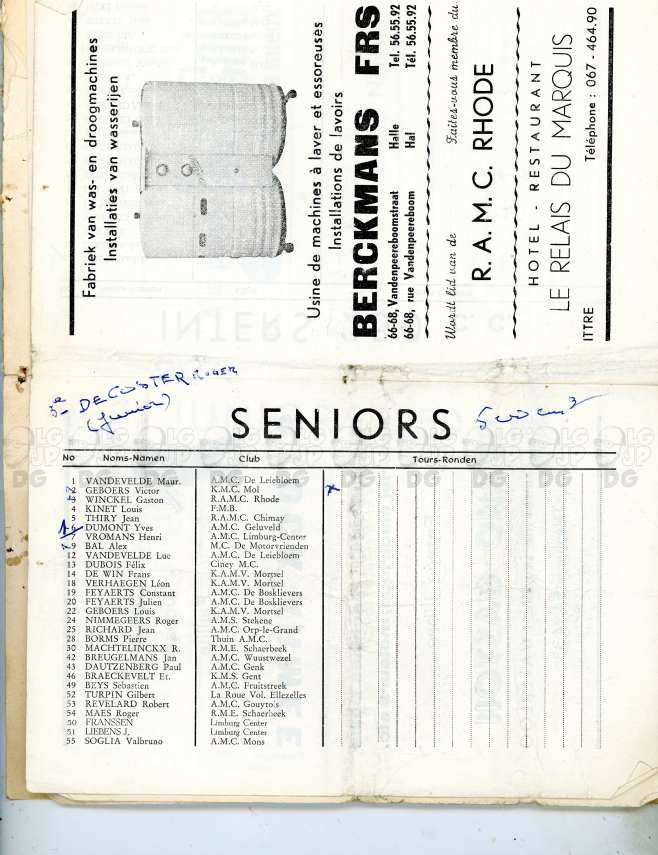 Fabriek van was- en droogmachines
Installaties van wasserijen
Usine de machines à laver et essoreuses
Installations de lavoirs
BERCKMANS FRS
66-68, Vandenpeereboomstraat Halle Tel. 56.55.92
66-68, rue Vandenpeereboom Hal Tél. 56.55.92
Wordt lid van de Faites-vous membre du
R.A.M.C. RHODE
HOTEL - RESTAURANT
LE RELAIS DU MARQUIS
ITTRE Téléphone : 067 - 464.90
3e DECOSTER ROGER
(junior)
SENIORS
No Noms-Namen Club Tours-Ronden
1 VANDEVELDE Maur. A.M.C. De Leiebloem
2 GEBOERS Victor K.M.C. Mol
3 WINCKEL Gaston R.A.M.C. Rhode
4 KINET Louis F.M.B.
5 THIRY Jean R.A.M.C. Chimay
6 DUMONT Yves A.M.C. Geluveld
7 VROMANS Henri A.M.C. Limburg-Center
9 BAL Alex M.C. De Motorvrienden
12 VANDEVELDE Luc A.M.C. De Leiebloem
13 DUBOIS Félix Ciney M.C.
14 DE WIN Frans K.A.M.V. Mortsel
18 VERHAEGEN Léon K.A.M.V. Mortsel
19 FEYAERTS Constant A.M.C. De Bosklievers
20 FEYAERTS Julien A.M.C. De Bosklievers
22 GEBOERS Louis K.A.M.V. Mortsel
24 NIMMEGEERS Roger A.M.S. Stekene
25 RICHARD Jean A.M.C. Orp-le-Grand
28 BORMS Pierre Thuin A.M.C.
30 MACHTELINCKX R. R.M.E. Schaerbeek
42 BREUGELMANS Jan A.M.C. Wuustwezel
43 DAUTZENBERG Paul A.M.C. Genk
46 BRAECKEVELT Et. K.M.S. Gent
49 BEYS Sebastien A.M.C. Fruitstreek
52 TURPIN Gilbert La Roue Vol. Ellezelles
53 REVELARD Robert A.M.C. Gouyto's
54 MAES Roger R.M.E. Schaerbeek
50 FRANSSEN Limburg Center
51 LIEBENS J. Limburg Center
55 SOGLIA Valbruno A.M.C. Mons